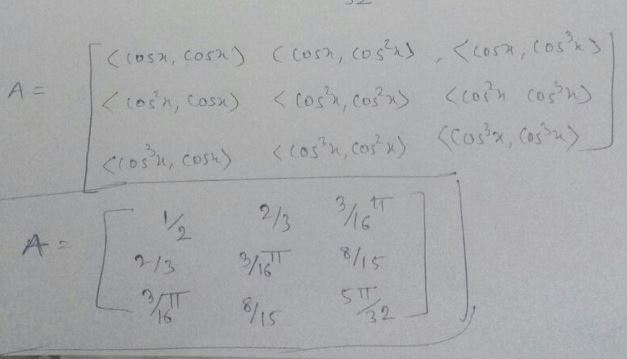 32
A = [ <cosx, cosx) (cosx, cos²x) , <cosx, cos³x)
<cos²x, cosx) <cos²x, cos²x) <cos²x cos³x)
<cos³x, cosx) <cos³x, cos²x) <cos³x, cos³x) ]
A = [ 1/2 2/3 3/16 π
2/3 3/16 π 8/15
3/16 π 8/15 5π/32 ]